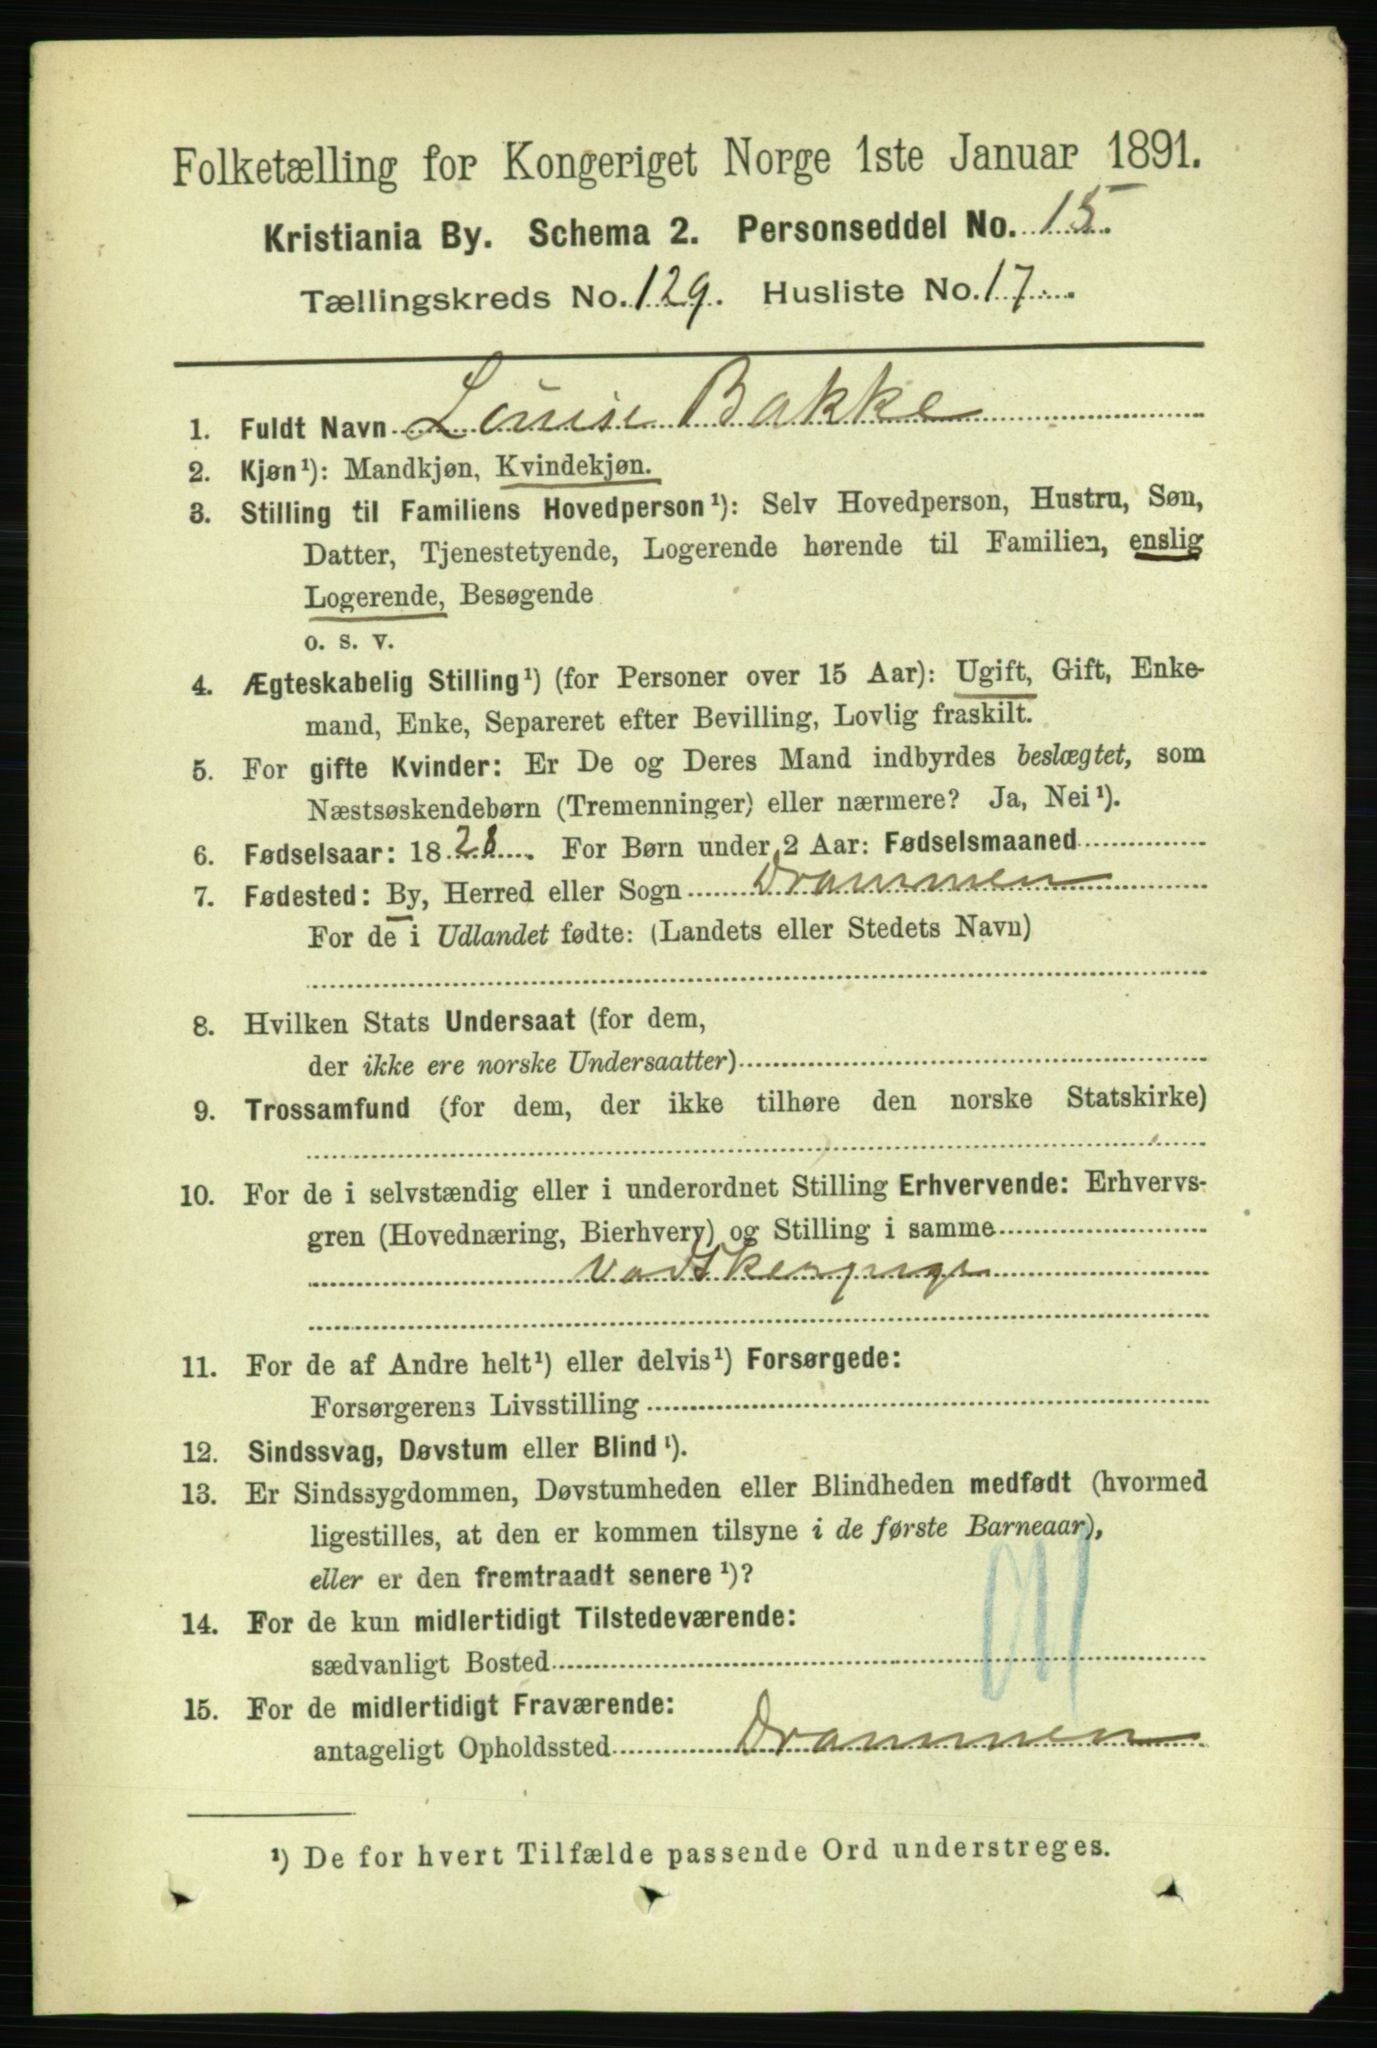 Folketælling for Kongeriget Norge 1ste Januar 1891.
Kristiania By. Schema 2. Personseddel No. 15.
Tællingskreds No. 129. Husliste No. 17.
1. Fuldt Navn Louise Bakke
2. Kjøn¹): Mandkjøn, Kvindekjøn.
3. Stilling til Familiens Hovedperson¹): Selv Hovedperson, Hustru, Søn,
Datter, Tjenestetyende, Logerende hørende til Familien, enslig
Logerende, Besøgende
o. s. v.
4. Ægteskabelig Stilling¹) (for Personer over 15 Aar): Ugift, Gift, Enke-
mand, Enke, Separeret efter Bevilling, Lovlig fraskilt.
5. For gifte Kvinder: Er De og Deres Mand indbyrdes beslægtet, som
Næstsøskendebørn (Tremenninger) eller nærmere? Ja, Nei¹).
6. Fødselsaar: 1828. For Børn under 2 Aar: Fødselsmaaned
7. Fødested: By, Herred eller Sogn Drammen
For de i Udlandet fødte: (Landets eller Stedets Navn)
8. Hvilken Stats Undersaat (for dem,
der ikke ere norske Undersaatter)
9. Trossamfund (for dem, der ikke tilhøre den norske Statskirke)
10. For de i selvstændig eller i underordnet Stilling Erhvervende: Erhvervs-
gren (Hovednæring, Bierhverv) og Stilling i samme
Vadskerpige
11. For de af Andre helt¹) eller delvis¹) Forsørgede:
Forsørgerens Livsstilling
12. Sindssvag, Døvstum eller Blind¹).
13. Er Sindssygdommen, Døvstumheden eller Blindheden medfødt (hvormed
ligestilles, at den er kommen tilsyne i de første Barneaar),
eller er den fremtraadt senere¹)?
14. For de kun midlertidigt Tilstedeværende:
sædvanligt Bosted
15. For de midlertidigt Fraværende:
antageligt Opholdssted Drammen
¹) De for hvert Tilfælde passende Ord understreges.